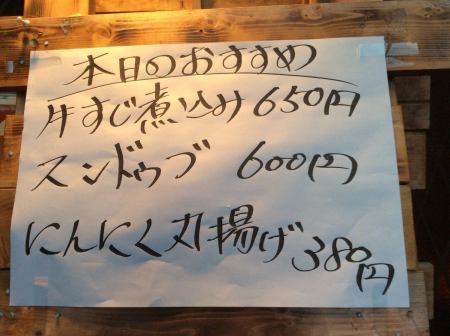 本日のおすすめ
牛すじ煮込み650円
スンドゥブ 600円
にんにく丸揚げ380円